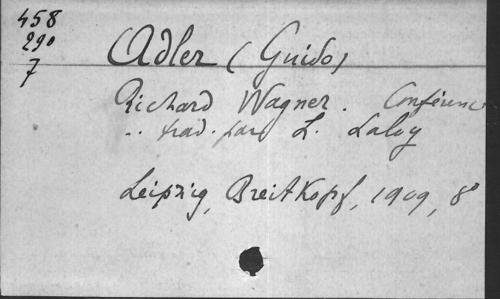 458
290
7
Adler (Guido)
Richard Wagner. Conférenc
.. trad. par L. Laloy
Leipzig, Breitkopf, 1909, 8°